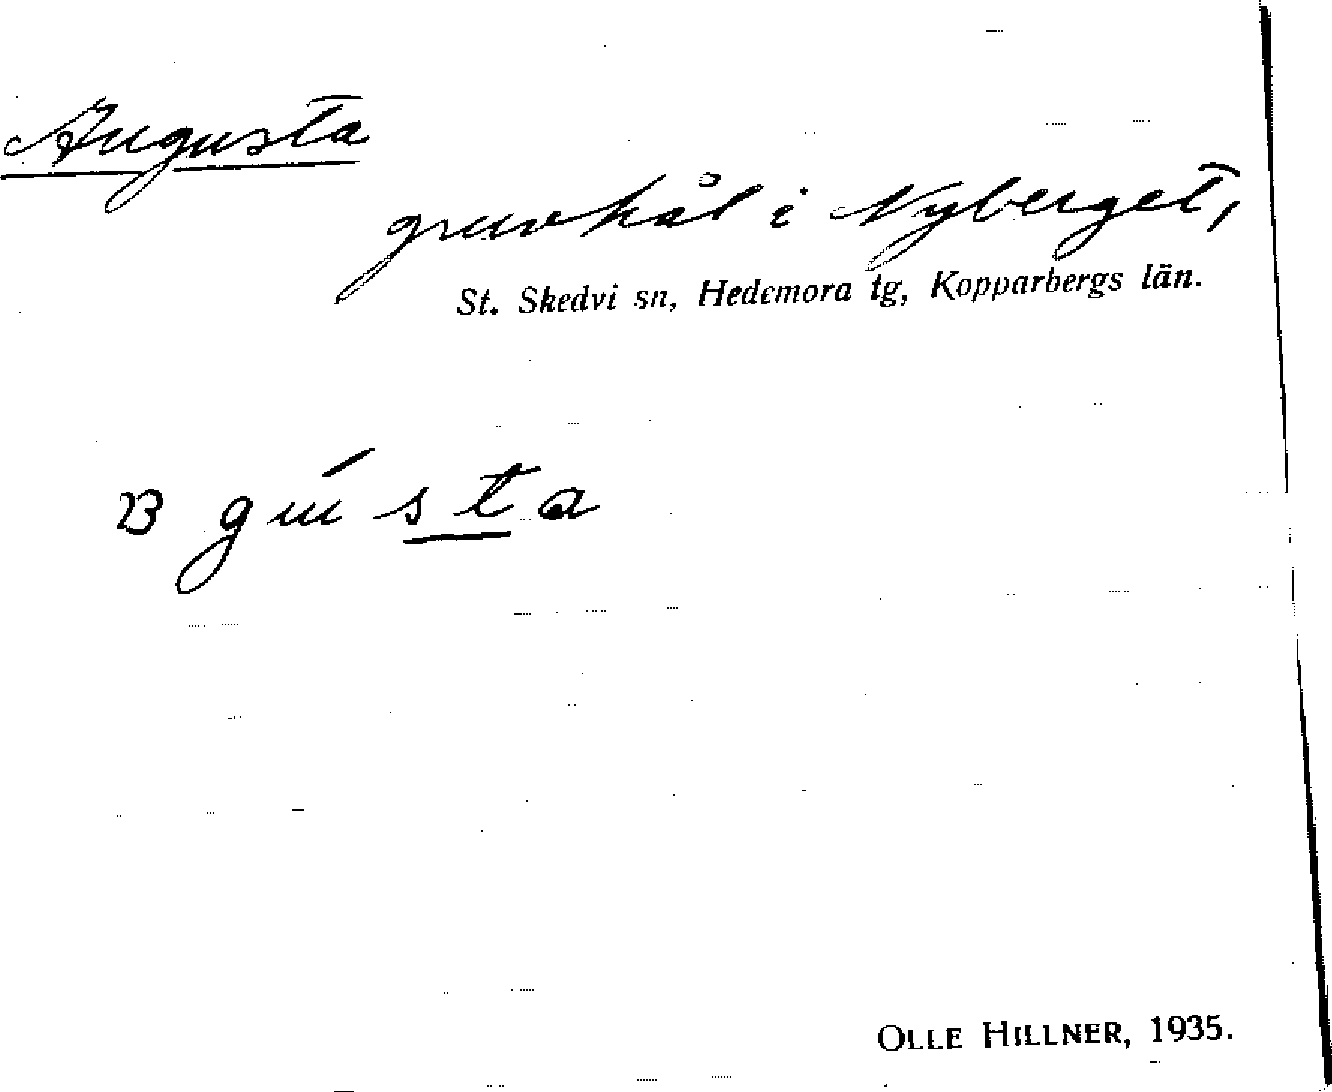 Augusta
gruvhål i Nyberget,
St. Skedvi sn, Hedemora tg, Kopparbergs län.
gústa
OLLE HILLNER, 1935.